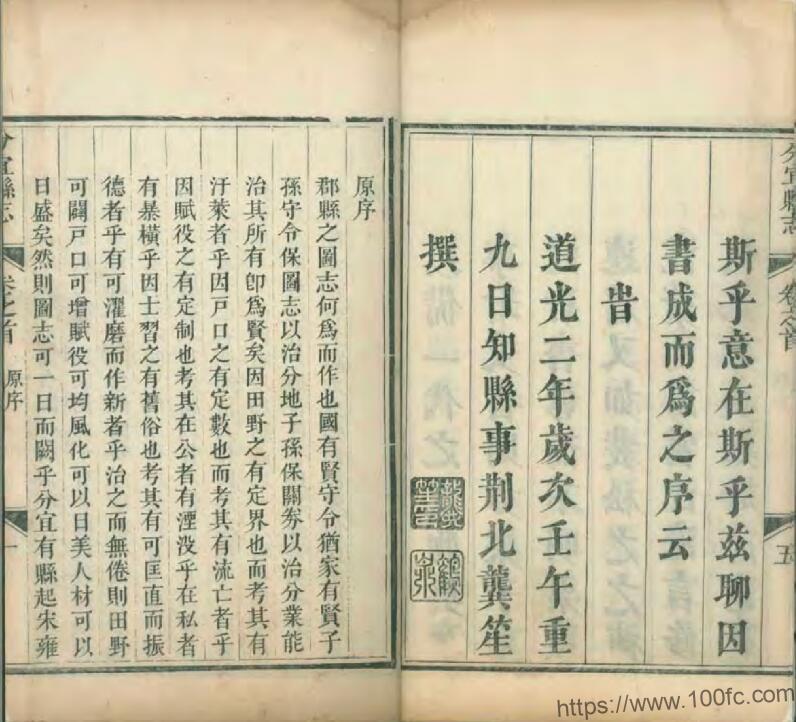 分宜縣志
卷之首
五
斯乎意在斯乎茲聊因
書成而爲之序云
旹
道光二年歲次壬午重
九日知縣事荆北龔笙
撰
原序
郡縣之圖志何爲而作也國有賢守令猶家有賢子
孫守令保圖志以治分地子孫保關券以治分業能
治其所有卽爲賢矣因田野之有定界也而考其有
汙萊者乎因戸口之有定數也而考其有流亡者乎
因賦役之有定制也考其在公者有湮没乎在私者
有暴橫乎因士習之有舊俗也考其有可匡直而振
德者乎有可濯磨而作新者乎治之而無倦則田野
可闢戸口可增賦役可均風化可以日美人材可以
日盛矣然則圖志可一日而闕乎分宜有縣起宋雍
分宜縣志
卷之首
原序
一
https://www.100fc.com